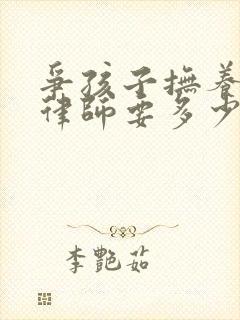 爭孩子撫養
律師要多少
李艷茹